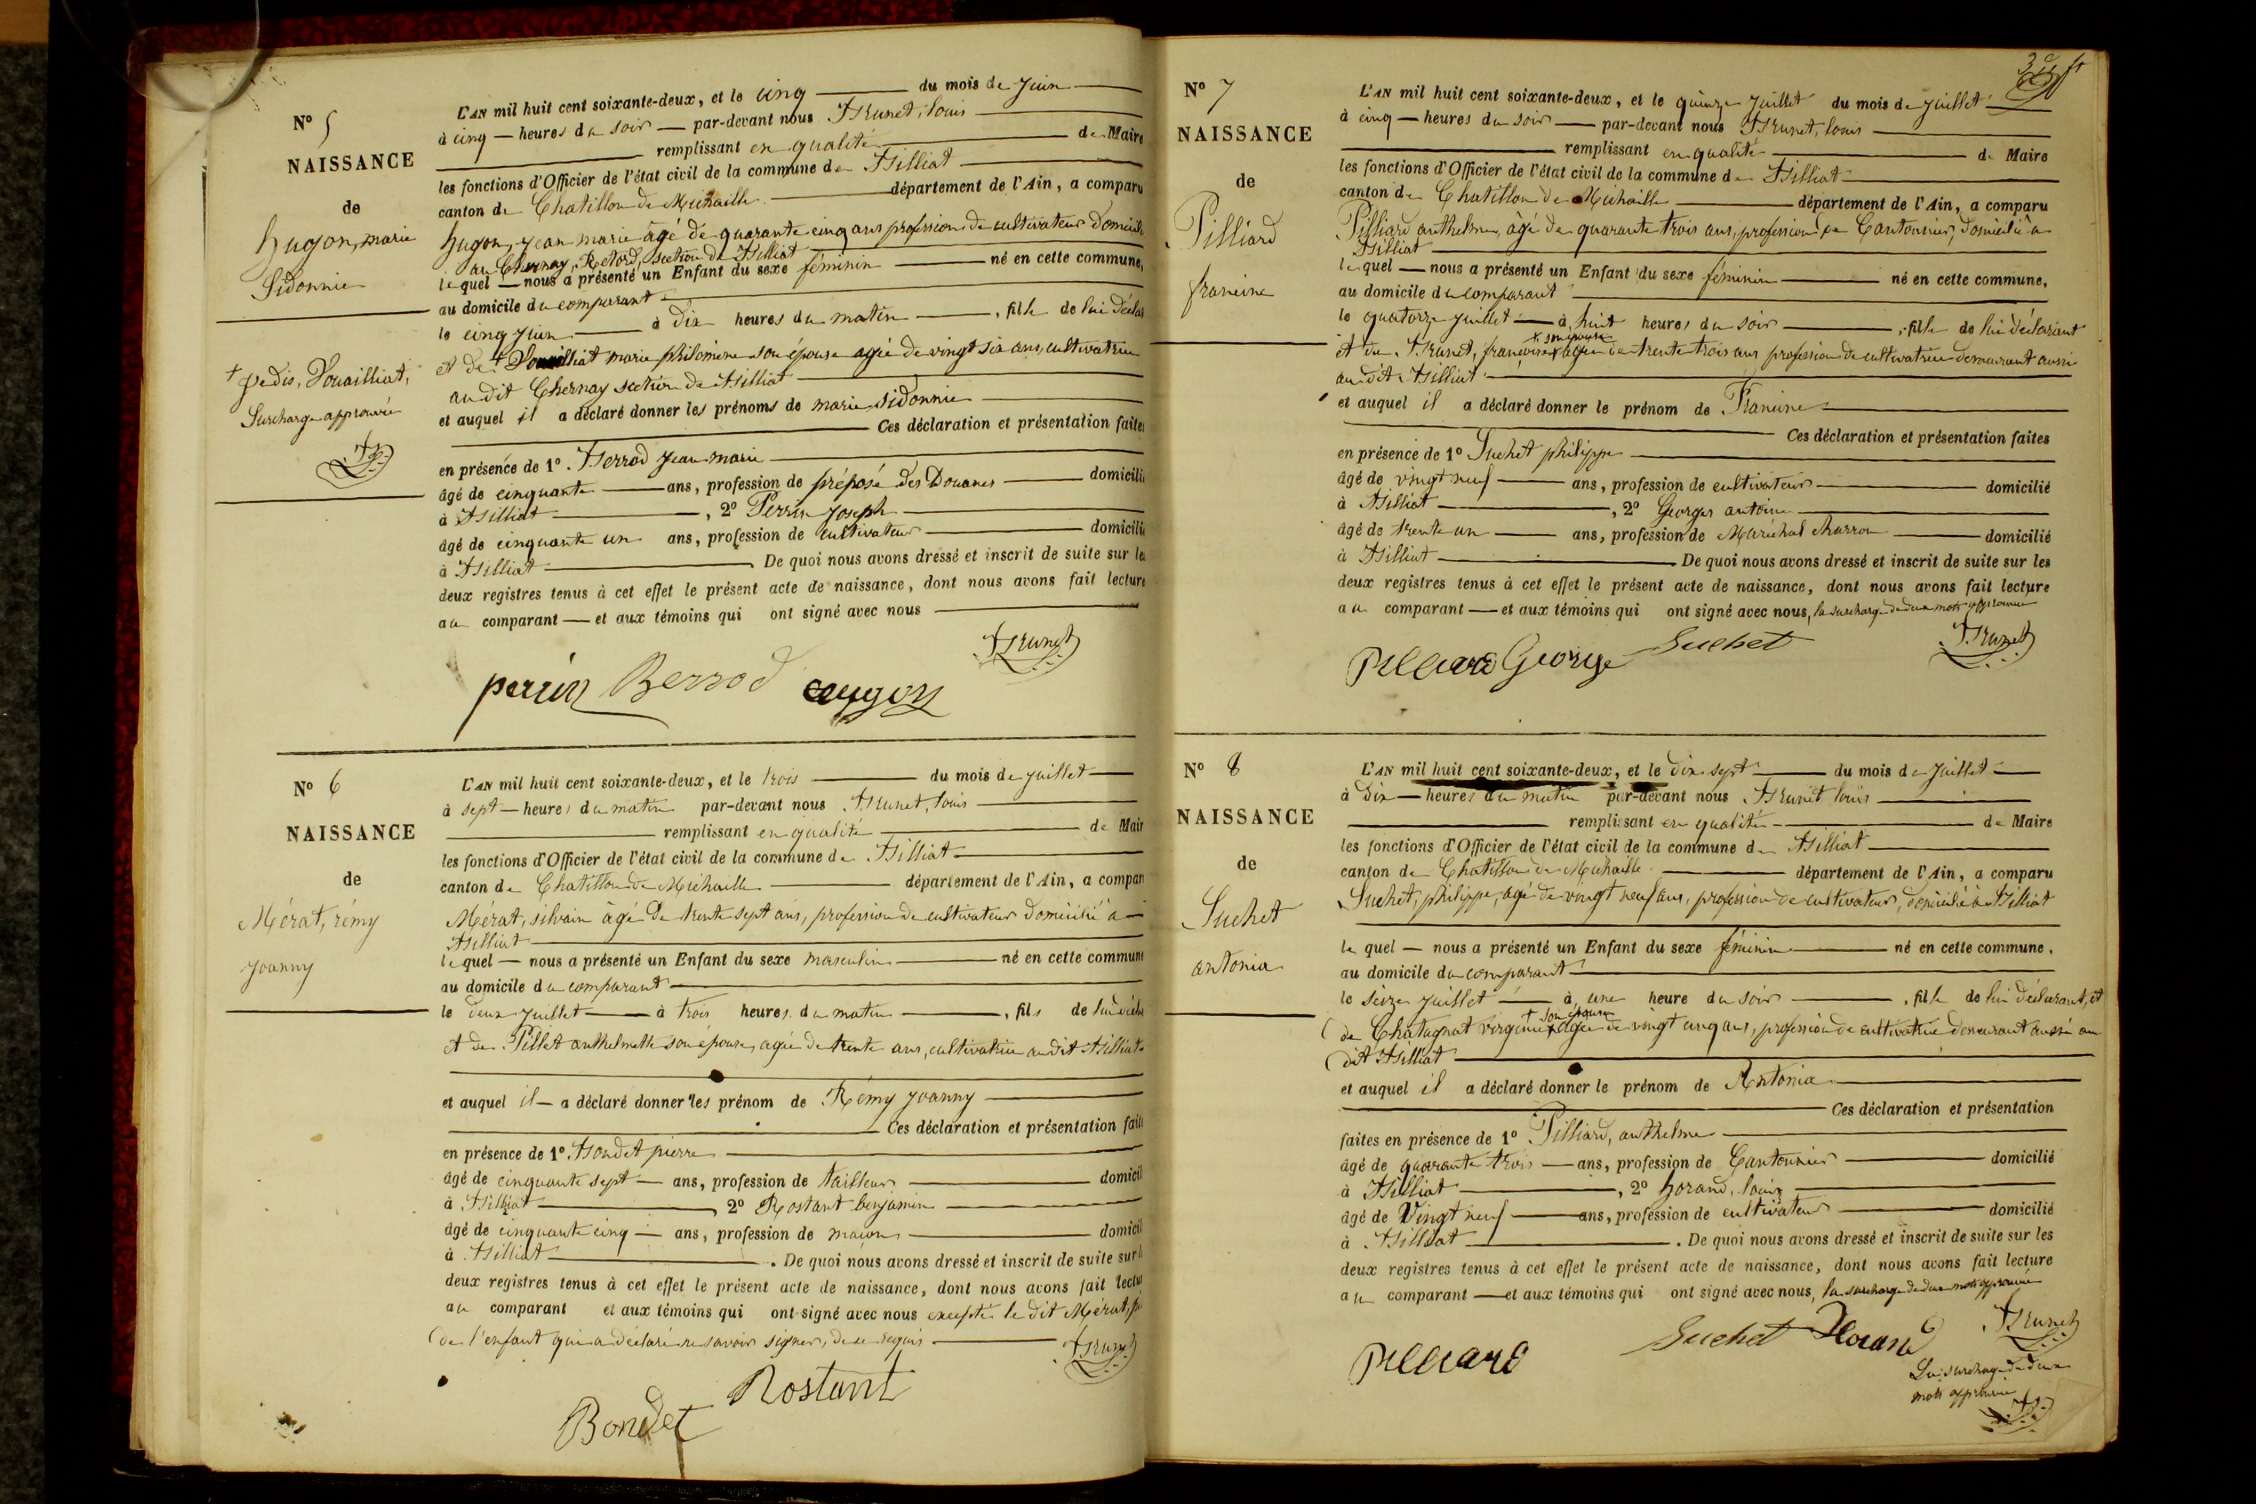 N° 5
NAISSANCE
de
hugon, marie
Sidonnie
+ je dis, Douailliat,
Surcharge approuvée
L'AN mil huit cent soixante-deux, et le cinq du mois de juin
à cinq heures du soir par-devant nous Brunet, louis
remplissant en qualité de Maire
les fonctions d'Officier de l'état civil de la commune de Billiat
canton de Chatillon de Michaille département de l'Ain, a comparu
hugon, jean marie âgé de quarante cinq ans profession de cultivateur domicilié
au Chernay, Retord, section de Billiat
lequel nous a présenté un Enfant du sexe féminin né en cette commune,
au domicile du comparant
le cinq juin à dix heures du matin, fille de lui déclar
et de + Douailliat marie philomène son épouse agée de vingt six ans, cultivatrice
au dit Chernay section de Billiat
et auquel il a déclaré donner les prénoms de marie sidonnie
Ces déclaration et présentation faites
en présence de 1° Berrod jean marie
âgé de cinquante ans, profession de préposé des Douanes domicilié
à Billiat, 2° Perrin joseph
âgé de cinquante un ans, profession de cultivateur domicilié
à Billiat De quoi nous avons dressé et inscrit de suite sur les
deux registres tenus à cet effet le présent acte de naissance, dont nous avons fait lecture
au comparant et aux témoins qui ont signé avec nous
Brunet
perrin Berrod hugon
N° 6
NAISSANCE
de
Mérat, rémy
joanny
L'AN mil huit cent soixante-deux, et le trois du mois de juillet
à sept heures du matin par-devant nous Brunet, louis
remplissant en qualité de Mair
les fonctions d'Officier de l'état civil de la commune de Billiat
canton de Chatillon de Michaille département de l'Ain, a compar
Mérat, silvain âgé de trente sept ans, profession de cultivateur domicilié à
Billiat
lequel nous a présenté un Enfant du sexe masculin né en cette commune
au domicile du comparant
le deux juillet à trois heures du matin, fils de lui décla
et de Pillet anthelmette son épouse, agée de trente ans, cultivatrice au dit Billiat
et auquel il a déclaré donner les prénom de Rémy joanny
Ces déclaration et présentation faite
en présence de 1° Bondet pierre
âgé de cinquante sept ans, profession de tailleur domicil
à Billiat, 2° Rostant benjamin
âgé de cinquante cinq ans, profession de maçon domicil
à Billiat. De quoi nous avons dressé et inscrit de suite sur l
deux registres tenus à cet effet le présent acte de naissance, dont nous avons fait lectu
au comparant et aux témoins qui ont signé avec nous excepté le dit Mérat, pè
de l'enfant qui a déclaré ne savoir signer, de ce requis
Brunet
Rostant
Bondet
N° 7
NAISSANCE
de
Pilliard
francine
L'AN mil huit cent soixante-deux, et le quinze juillet du mois de juillet
à cinq heures du soir par-devant nous Brunet, louis
remplissant en qualité de Maire
les fonctions d'Officier de l'état civil de la commune de Billiat
canton de Chatillon de Michaille département de l'Ain, a comparu
Pilliard anthelme, âgé de quarante trois ans, profession de Cantonnier, domicilié à
Billiat
lequel nous a présenté un Enfant du sexe féminin né en cette commune,
au domicile du comparant
le quatorze juillet à huit heures du soir, fille de lui déclarant
+ son épouse
et de Brunet, françoise + agée de trente trois ans profession de cultivatrice demeurant aussi
au dit Billiat
et auquel il a déclaré donner le prénom de Francine
Ces déclaration et présentation faites
en présence de 1° Suchet philippe
âgé de vingt neuf ans, profession de cultivateur domicilié
à Billiat, 2° Georges antoine
âgé de trente un ans, profession de Maréchal charron domicilié
à Billiat De quoi nous avons dressé et inscrit de suite sur les
deux registres tenus à cet effet le présent acte de naissance, dont nous avons fait lecture
au comparant et aux témoins qui ont signé avec nous, la surcharge de deux mots approuvée
Brunet
Pilliard George Suchet
N° 8
NAISSANCE
de
Suchet
antonia
L'AN mil huit cent soixante-deux, et le dix sept du mois de juillet
à dix heures du matin par-devant nous Brunet louis
remplissant en qualité de Maire
les fonctions d'Officier de l'état civil de la commune de Billiat
canton de Chatillon de Michaille département de l'Ain, a comparu
Suchet, philippe, agé de vingt neuf ans, profession de cultivateur, domicilié à Billiat
lequel nous a présenté un Enfant du sexe féminin né en cette commune,
au domicile du comparant
le seize juillet à une heure du soir, fille de lui déclarant, et
+ son épouse
de Chatagnat virginie + agée de vingt cinq ans, profession de cultivatrice demeurant aussi au
dit Billiat
et auquel il a déclaré donner le prénom de Antonia
Ces déclaration et présentation
faites en présence de 1° Pilliard, anthelme
âgé de quarante trois ans, profession de Cantonnier domicilié
à Billiat, 2° horand, louis
âgé de Vingt neuf ans, profession de cultivateur domicilié
à Billiat. De quoi nous avons dressé et inscrit de suite sur les
deux registres tenus à cet effet le présent acte de naissance, dont nous avons fait lecture
au comparant et aux témoins qui ont signé avec nous, la surcharge de deux mots approuvée
Brunet
Pilliard Suchet Horand
La surcharge de deux
mots approuvée